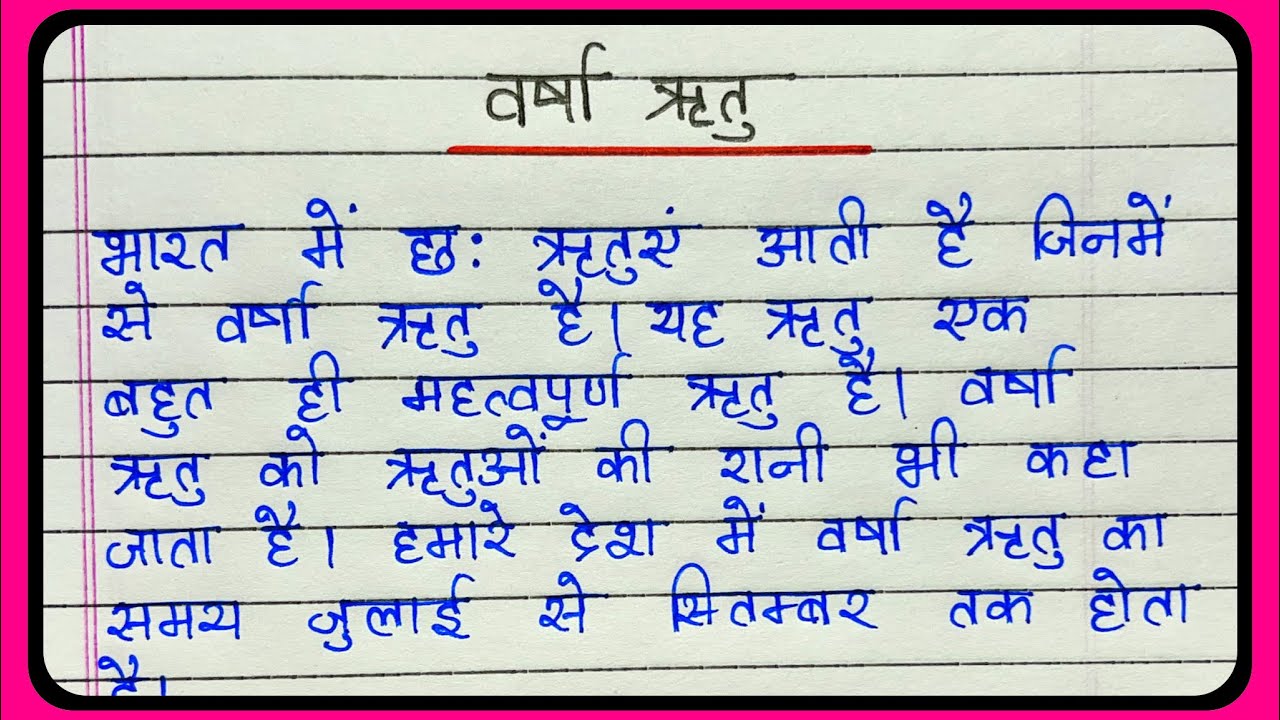 वर्षा ऋतु
भारत में छः ऋतुएं आती है जिनमें
से वर्षा ऋतु है। यह ऋतु एक
बहुत ही महत्वपूर्ण ऋतु है। वर्षा
ऋतु को ऋतुओं की रानी भी कहा
जाता है। हमारे देश में वर्षा ऋतु का
समय जुलाई से सितम्बर तक होता
है।